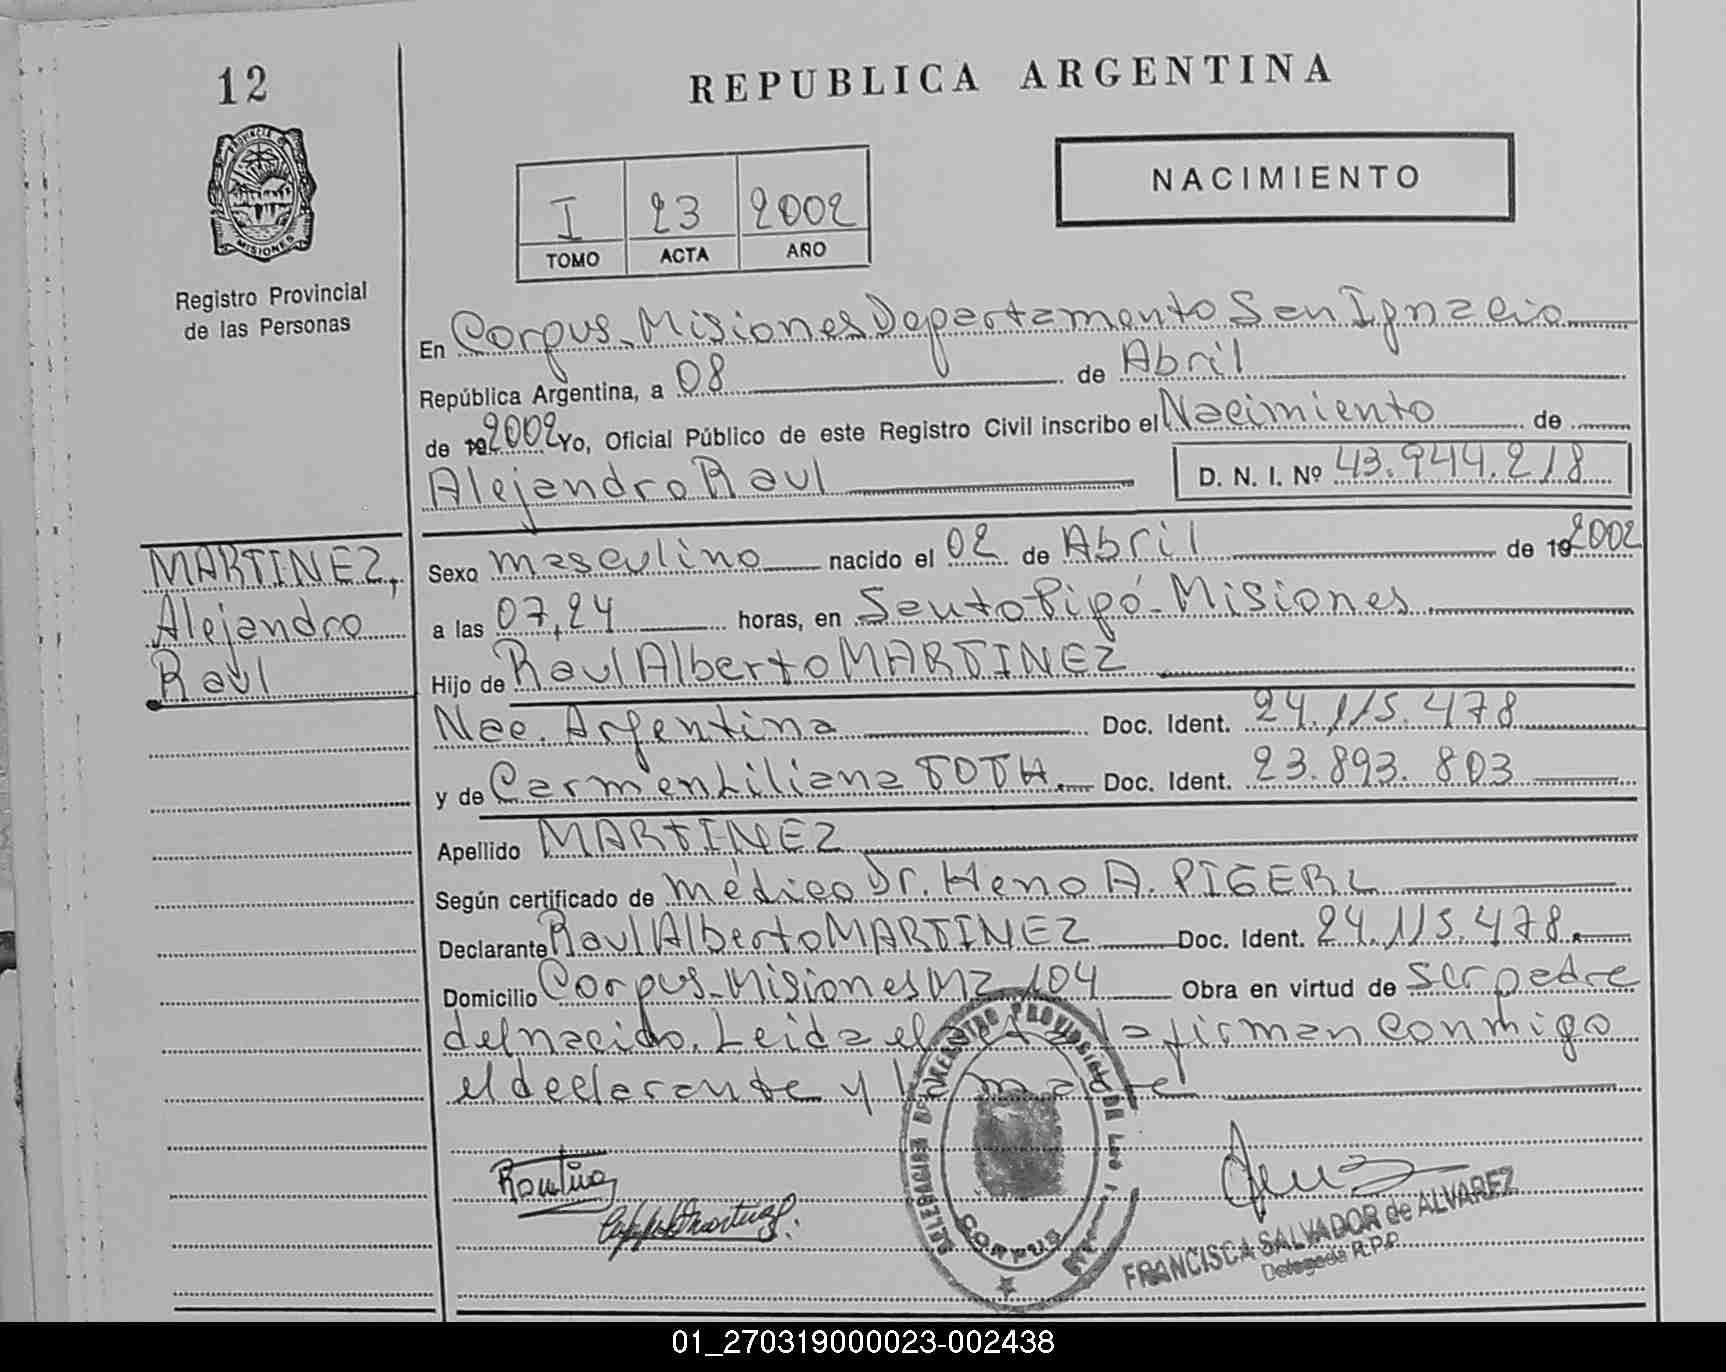 12
REPUBLICA ARGENTINA
PROVINCIA DE
MISIONES
Registro Provincial
de las Personas
NACIMIENTO
I 23 2002
TOMO ACTA AÑO
En Corpus_Misiones Departamento San Ignacio
República Argentina, a 08 de Abril
de 19 2002 Yo, Oficial Público de este Registro Civil inscribo el Nacimiento de
Alejandro Raul D. N. I. Nº 43.944.218
MARTINEZ,
Alejandro
Raúl
Sexo masculino nacido el 02 de Abril de 19 2002
a las 07,24 horas, en Santo Pipó-Misiones
Hijo de Raul Alberto MARTINEZ
Nac. Argentina Doc. Ident. 24.115.478
y de Carmen Liliana TOTH. Doc. Ident. 23.893.803
Apellido MARTINEZ
Según certificado de médico Dr. Heno A. PIGERL
Declarante Raul Alberto MARTINEZ Doc. Ident. 24.115.478.
Domicilio Corpus_Misiones Mz 104 Obra en virtud de ser padre
del nacido. Leida el acta la firman conmigo
el declarante y la madre
REGISTRO PROVINCIAL DE LAS
CORPUS
FRANCISCA SALVADOR de ALVAREZ
Delegada R.P.P.
01_270319000023-002438